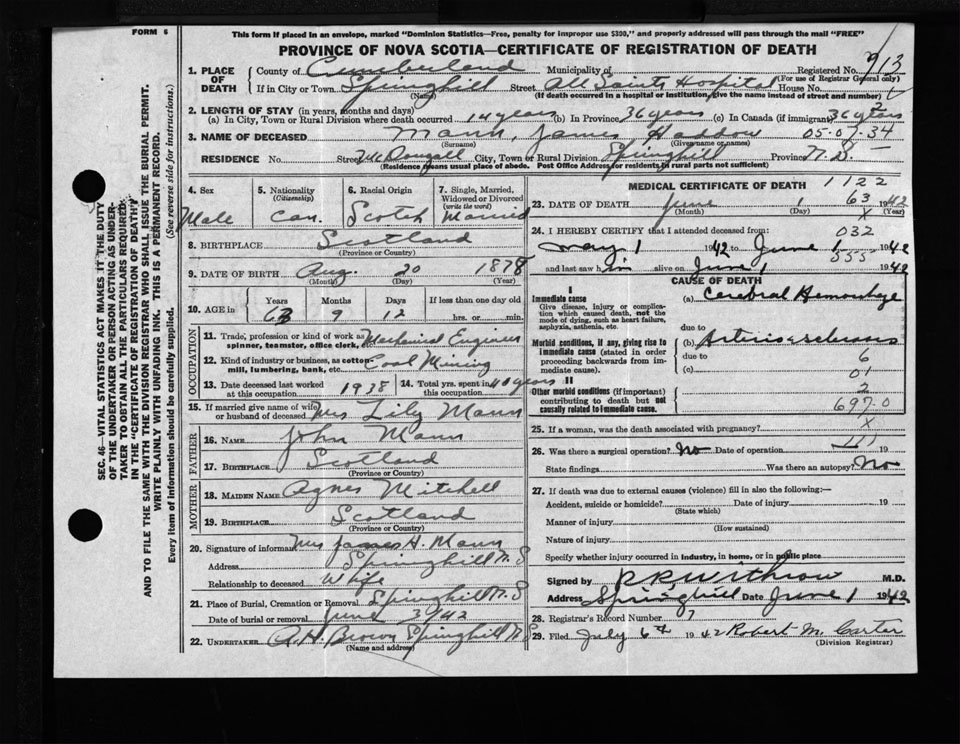 FORM 6
This form if placed in an envelope, marked "Dominion Statistics—Free, penalty for improper use $300," and properly addressed will pass through the mail "FREE"
PROVINCE OF NOVA SCOTIA—CERTIFICATE OF REGISTRATION OF DEATH
1. PLACE OF DEATH County of Cumberland Municipality of Registered No. 913
(For use of Registrar General only)
If in City or Town Springhill Street All Saints Hospital House No.
(Name) (If death occurred in a hospital or institution, give the name instead of street and number)
2. LENGTH OF STAY (in years, months and days)
(a) In City, Town or Rural Division where death occurred 14 years (b) In Province 36 years (c) In Canada (if immigrant) 36 years
2
3. NAME OF DECEASED Mann, James Haddow 05-07-34
(Surname) (Given name or names)
RESIDENCE No. Street McDougall City, Town or Rural Division Springhill Province N.S.
(Residence means usual place of abode. Post Office Address for residents in rural parts not sufficient)
4. Sex Male
5. Nationality (Citizenship) Can.
6. Racial Origin Scotch
7. Single, Married, Widowed or Divorced (write the word) Married
8. BIRTHPLACE Scotland
(Province or Country)
9. DATE OF BIRTH Aug. 20 1878
(Month) (Day) (Year)
10. AGE in Years Months Days If less than one day old
63 9 12 hrs. or min.
OCCUPATION
11. Trade, profession or kind of work as spinner, teamster, office clerk, etc. Mechanical Engineer
12. Kind of industry or business, as cotton-mill, lumbering, bank, etc. Coal Mining
13. Date deceased last worked at this occupation 1938 14. Total yrs. spent in this occupation 40 years
15. If married give name of wife or husband of deceased Mrs Lily Mann
FATHER
16. NAME John Mann
17. BIRTHPLACE Scotland
(Province or Country)
MOTHER
18. MAIDEN NAME Agnes Mitchell
19. BIRTHPLACE Scotland
(Province or Country)
20. Signature of informant Mrs James H. Mann
Address Springhill N.S
Relationship to deceased Wife
21. Place of Burial, Cremation or Removal Springhill N.S
Date of burial or removal June 3/42
22. UNDERTAKER A.H. Brown Springhill N.S
(Name and address)
MEDICAL CERTIFICATE OF DEATH 1122
23. DATE OF DEATH June 1 63 1942
(Month) (Day) X (Year)
24. I HEREBY CERTIFY that I attended deceased from: 032
May 1 1942 to June 1 555 1942
and last saw him alive on June 1 1942
CAUSE OF DEATH
I
Immediate cause
Give disease, injury or complication which caused death, not the mode of dying, such as heart failure, asphyxia, asthenia, etc.
(a) Cerebral Hemorrhage
due to
Morbid conditions, if any, giving rise to immediate cause (stated in order proceeding backwards from immediate cause).
(b) Arteriosclerosis
due to 6
(c) 01
II
Other morbid conditions (if important) contributing to death but not causally related to immediate cause.
2
697.0
25. If a woman, was the death associated with pregnancy? X
26. Was there a surgical operation? No Date of operation 19
State findings Was there an autopsy? No
27. If death was due to external causes (violence) fill in also the following:—
Accident, suicide or homicide? Date of injury 19
(State which)
Manner of injury
(How sustained)
Nature of injury
Specify whether injury occurred in industry, in home, or in public place
Signed by R R Withrow M.D.
Address Springhill Date June 1 1942
28. Registrar's Record Number 7
29. Filed July 6th 1942 Robert M. Carter
(Division Registrar)
SEC. 46—VITAL STATISTICS ACT MAKES IT THE DUTY
OF THE UNDERTAKER OR PERSON ACTING AS UNDER-
TAKER TO OBTAIN ALL THE PARTICULARS REQUIRED
IN THE "CERTIFICATE OF REGISTRATION OF DEATH"
AND TO FILE THE SAME WITH THE DIVISION REGISTRAR WHO SHALL ISSUE THE BURIAL PERMIT.
WRITE PLAINLY WITH UNFADING INK. THIS IS A PERMANENT RECORD.
Every item of information should be carefully supplied. (See reverse side for instructions.)